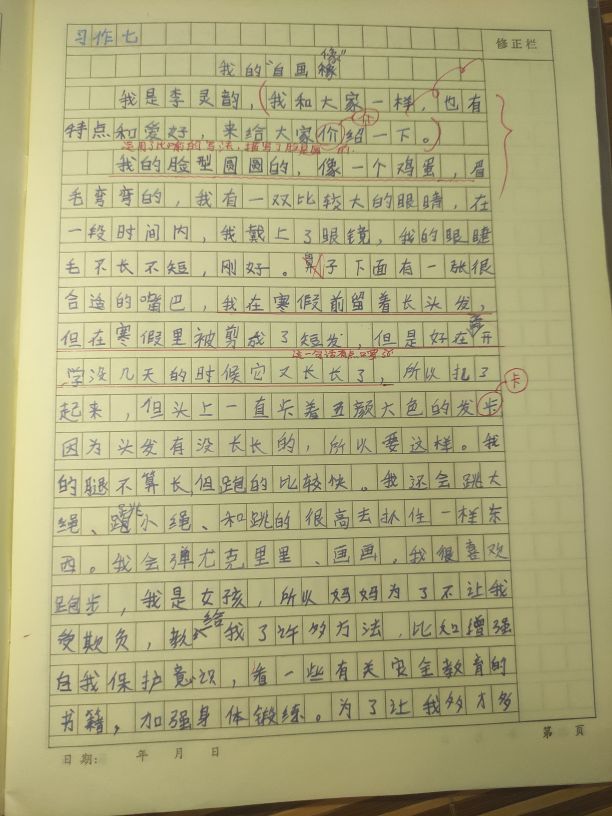 习作七
修正栏
我的"自画像"
我是李灵韵,(我和大家一样,也有
特点和爱好,来给大家价绍一下。)
介
运用了比喻的写法,描写了脸是圆的。
我的脸型圆圆的,像一个鸡蛋,眉
毛弯弯的,我有一双比较大的眼睛,在
一段时间内,我戴上了眼镜,我的眼睫
毛不长不短,刚好。鼻子下面有一张很
合适的嘴巴,我在寒假前留着长头发,
但在寒假里被剪成了短发,但是好在开
这一句话有点口罗
学没几天的时候它又长长了,所以扎了
起来,但头上一直卡着五颜大色的发卡
卡
因为头发有没长长的,所以要这样。我
的腿不算长,但跑的比较快。我还会跳大
绳、跳小绳、和跳的很高去抓住一样东
西。我会弹尤克里里、画画,我很喜欢
跑步,我是女孩,所以妈妈为了不让我
受欺负,教给我了许多方法,比如增强
自我保护意识,看一些有关安全教育的
书籍,加强身体锻练。为了让我多才多
日期: 年 月 日
第 页